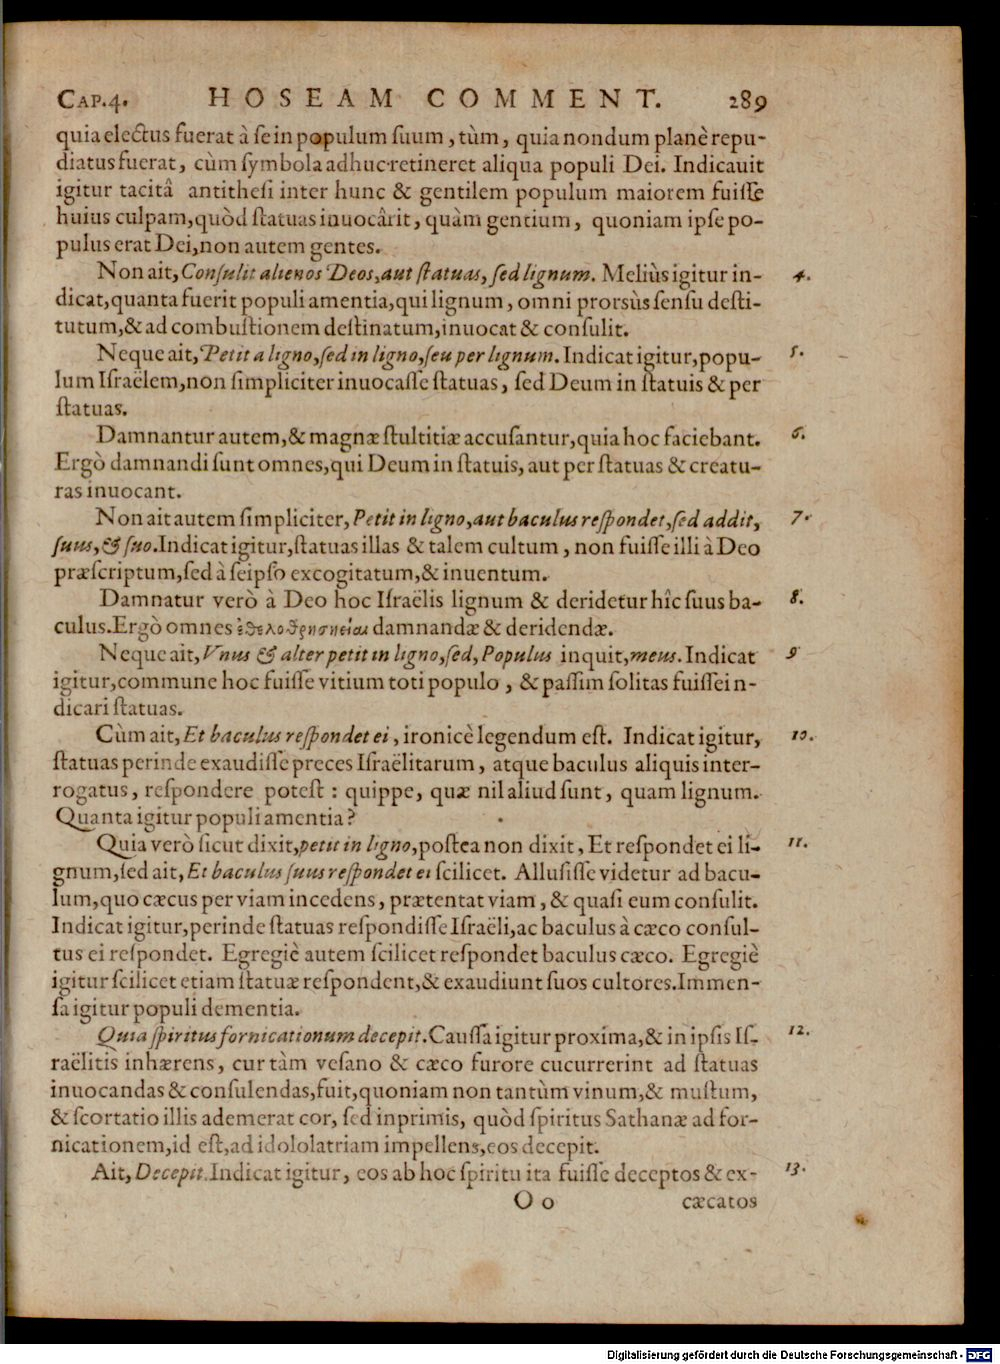 CAP.4. HOSEAM COMMENT. 289
quia electus fuerat à se in populum suum, tùm, quia nondum planè repu-
diatus fuerat, cùm symbola adhuc retineret aliqua populi Dei. Indicauit
igitur tacitâ antithesi inter hunc & gentilem populum maiorem fuisse
huius culpam, quòd statuas inuocârit, quàm gentium, quoniam ipse po-
pulus erat Dei, non autem gentes.
Non ait, Consulit alienos Deos, aut statuas, sed lignum. Meliùs igitur in- 4.
dicat, quanta fuerit populi amentia, qui lignum, omni prorsùs sensu desti-
tutum, & ad combustionem destinatum, inuocat & consulit.
Neque ait, Petit a ligno, sed in ligno, seu per lignum. Indicat igitur, popu- 5.
lum Israëlem, non simpliciter inuocasse statuas, sed Deum in statuis & per
statuas.
Damnantur autem, & magnæ stultitiæ accusantur, quia hoc faciebant. 6.
Ergò damnandi sunt omnes, qui Deum in statuis, aut per statuas & creatu-
ras inuocant.
Non ait autem simpliciter, Petit in ligno, aut baculus respondet, sed addit, 7.
suus, & suo. Indicat igitur, statuas illas & talem cultum, non fuisse illi à Deo
præscriptum, sed à seipso excogitatum, & inuentum.
Damnatur verò à Deo hoc Israëlis lignum & deridetur hîc suus ba- 8.
culus. Ergò omnes ἐθελοθρησκείαι damnandæ & deridendæ.
Neque ait, Vnus & alter petit in ligno, sed, Populus inquit, meus. Indicat 9
igitur, commune hoc fuisse vitium toti populo, & passim solitas fuisse in-
dicari statuas.
Cùm ait, Et baculus respondet ei, ironicè legendum est. Indicat igitur, 10.
statuas perinde exaudisse preces Israëlitarum, atque baculus aliquis inter-
rogatus, respondere potest: quippe, quæ nil aliud sunt, quam lignum.
Quanta igitur populi amentia?
Quia verò sicut dixit, petit in ligno, postea non dixit, Et respondet ei li- 11.
gnum, sed ait, Et baculus suus respondet ei scilicet. Allusisse videtur ad bacu-
lum, quo cæcus per viam incedens, prætentat viam, & quasi eum consulit.
Indicat igitur, perinde statuas respondisse Israëli, ac baculus à cæco consul-
tus ei respondet. Egregiè autem scilicet respondet baculus cæco. Egregiè
igitur scilicet etiam statuæ respondent, & exaudiunt suos cultores. Immen-
sa igitur populi dementia.
Quia spiritus fornicationum decepit. Caussa igitur proxima, & in ipsis Is- 12.
raëlitis inhærens, cur tàm vesano & cæco furore cucurrerint ad statuas
inuocandas & consulendas, fuit, quoniam non tantùm vinum, & mustum,
& scortatio illis ademerat cor, sed inprimis, quòd spiritus Sathanæ ad for-
nicationem, id est, ad idololatriam impellens, eos decepit.
Ait, Decepit. Indicat igitur, eos ab hoc spiritu ita fuisse deceptos & ex- 13.
O o cæcatos
Digitalisierung gefördert durch die Deutsche Forschungsgemeinschaft - DFG